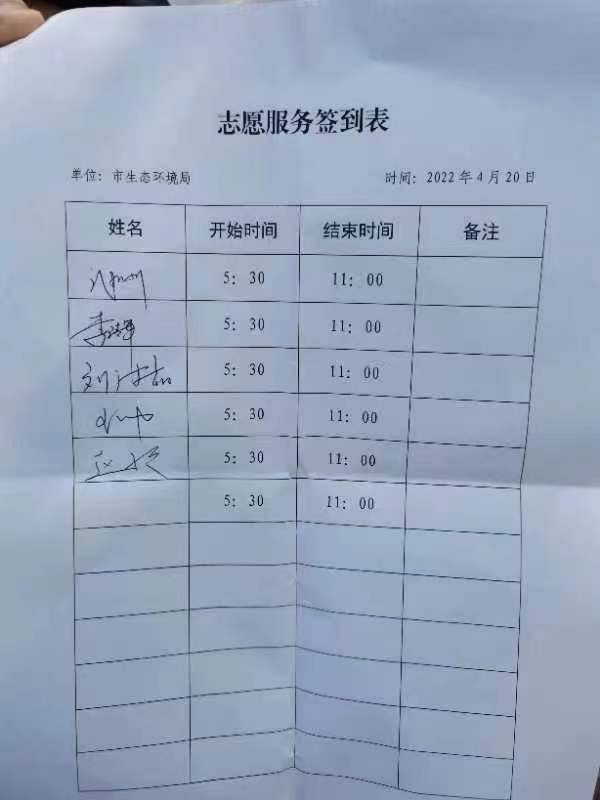 志愿服务签到表
单位：市生态环境局 时间：2022年4月20日
姓名 开始时间 结束时间 备注
5：30 11：00
5：30 11：00
刘 5：30 11：00
5：30 11：00
5：30 11：00
5：30 11：00